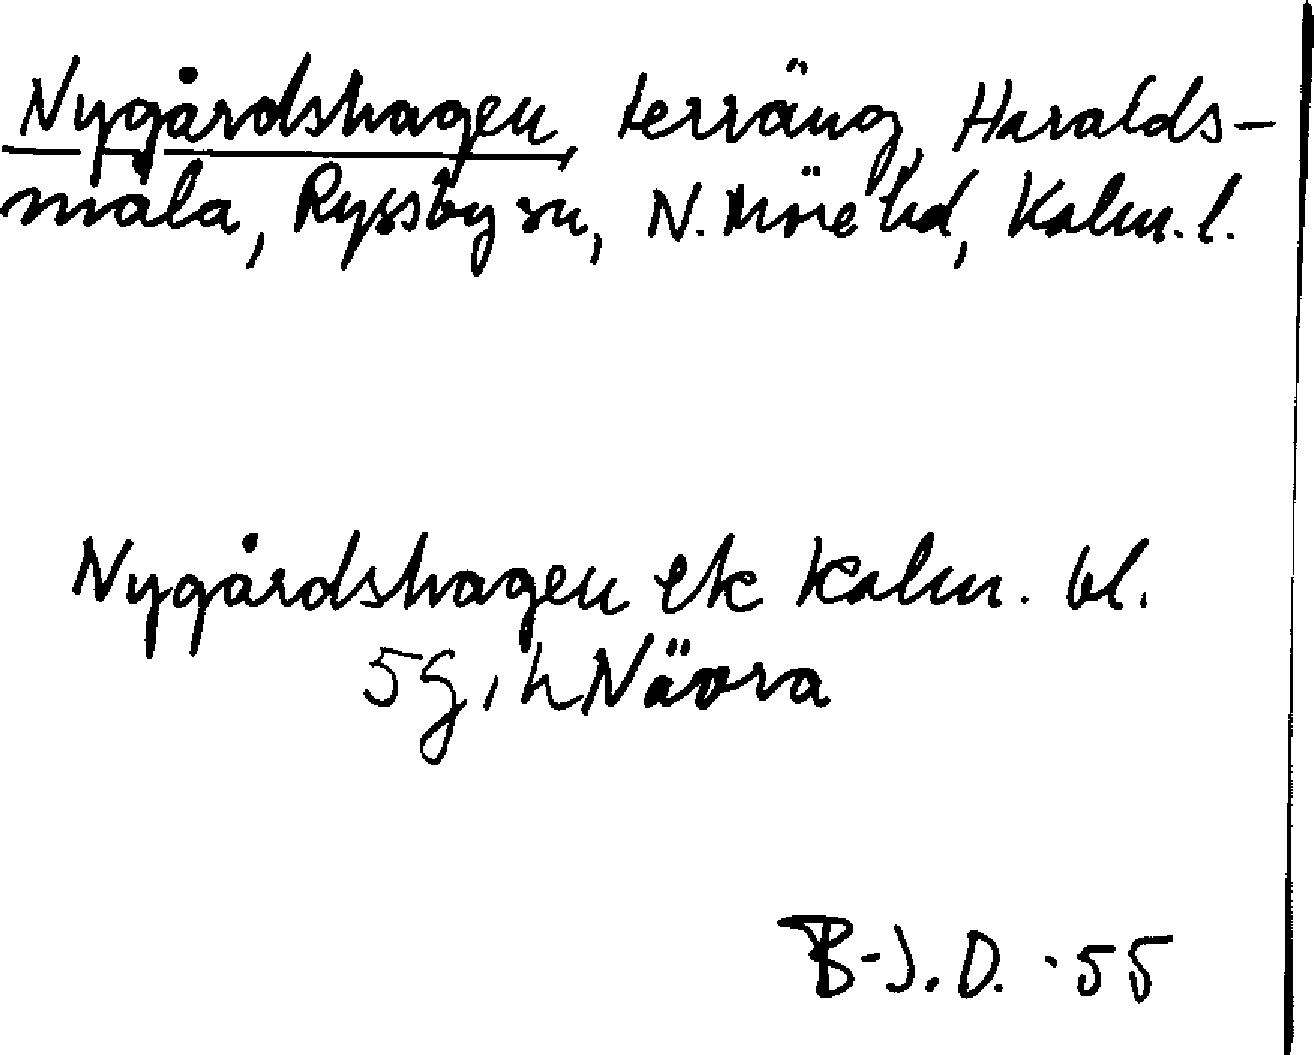 Nygårdshagen, terräng, Haralds-
måla, Ryssby sn, N. Möre hd, Kalm. l.
Nygårdshagen ek Kalm. bl.
5g, h Nävra
B-J.D. -55